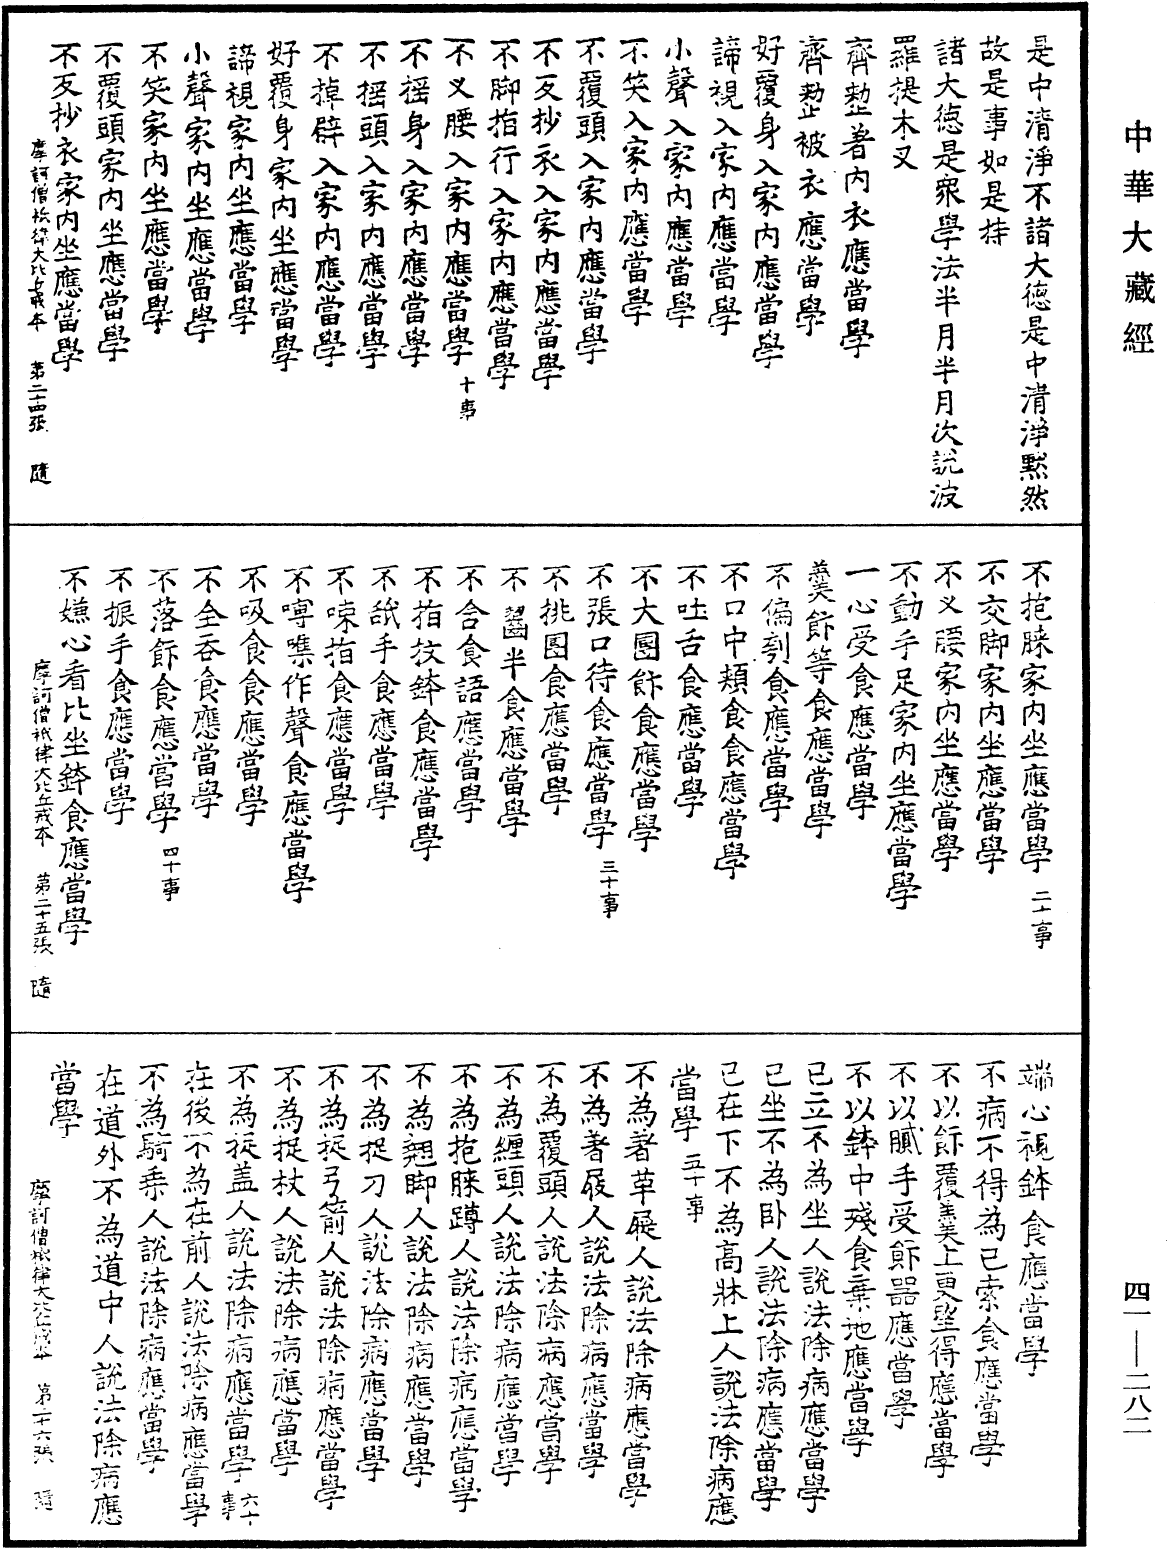 中華大藏經
是中清淨不諸大德是中清淨默然
故是事如是持
諸大德是眾學法半月半月次說波
羅提木叉
齊整著內衣應當學
齊整被衣應當學
好覆身入家內應當學
諦視入家內應當學
小聲入家內應當學
不笑入家內應當學
不覆頭入家內應當學
不反抄衣入家內應當學
不脚指行入家內應當學
不叉腰入家內應當學 十事
不搖身入家內應當學
不搖頭入家內應當學
不掉臂入家內應當學
好覆身家內坐應當學
諦視家內坐應當學
小聲家內坐應當學
不笑家內坐應當學
不覆頭家內坐應當學
不反抄衣家內坐應當學
摩訶僧祇律大比丘戒本 第二十四張 隨
不抱膝家內坐應當學 二十事
不交脚家內坐應當學
不叉腰家內坐應當學
不動手足家內坐應當學
一心受食應當學
羹飯等食應當學
不偏刳食應當學
不口中頰食食應當學
不吐舌食應當學
不大團飯食應當學
不張口待食應當學 三十事
不挑團食應當學
不齧半食應當學
不含食語應當學
不指抆鉢食應當學
不舐手食應當學
不嗽指食應當學
不嘙噍作聲食應當學
不吸食食應當學
不全吞食應當學
不落飯食應當學 四十事
不振手食應當學
不嫌心看比坐鉢食應當學
摩訶僧祇律大比丘戒本 第二十五張 隨
端心視鉢食應當學
不病不得為己索食應當學
不以飯覆羹上更望得應當學
不以膩手受飯器應當學
不以鉢中殘食棄地應當學
己立不為坐人說法除病應當學
己坐不為臥人說法除病應當學
己在下不為高牀上人說法除病應
當學 五十事
不為著革屣人說法除病應當學
不為著屐人說法除病應當學
不為覆頭人說法除病應當學
不為纏頭人說法除病應當學
不為抱膝蹲人說法除病應當學
不為翹脚人說法除病應當學
不為捉刀人說法除病應當學
不為捉弓箭人說法除病應當學
不為捉杖人說法除病應當學
不為捉蓋人說法除病應當學 六十事
在後不為在前人說法除病應當學
不為騎乘人說法除病應當學
在道外不為道中人說法除病應
當學
摩訶僧祇律大比丘戒本 第二十六張 隨
四一—二八二